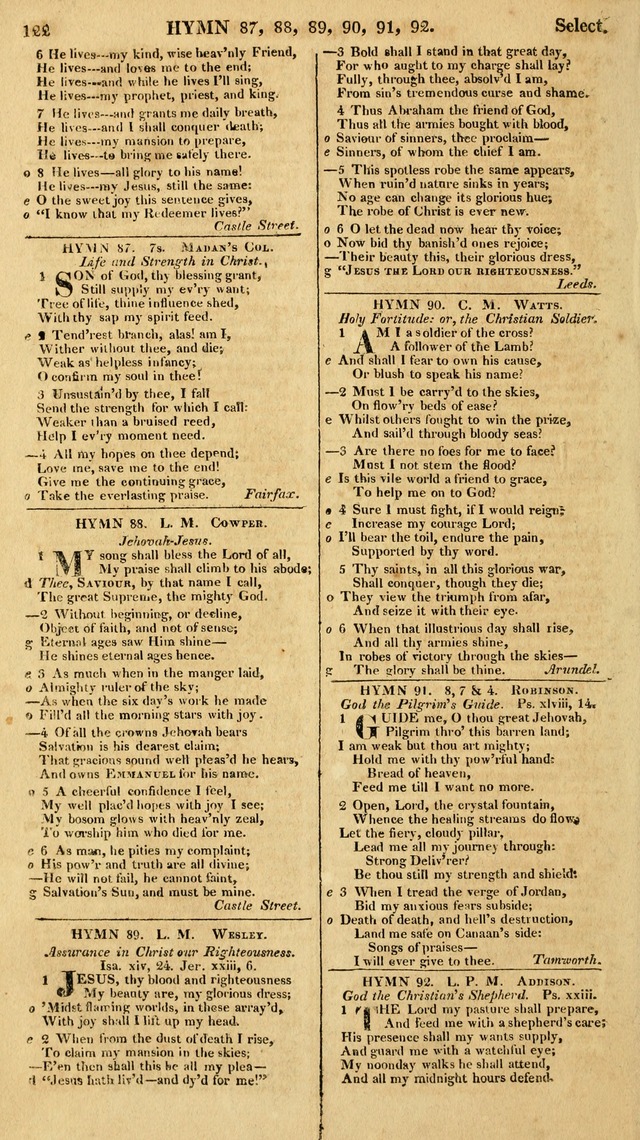 122 HYMN 87, 88, 89, 90, 91, 92. Select.
6 He lives---my kind, wise heav'nly Friend,
He lives---and loves me to the end;
He lives---and while he lives I'll sing,
He lives---my prophet, priest, and king.
7 He lives---and grants me daily breath,
He lives---and I shall conquer death;
He lives---my mansion to prepare,
He lives---to bring me safely there.
o 8 He lives—all glory to his name!
He lives---my Jesus, still the same:
e O the sweet joy this sentence gives,
o "I know that my Redeemer lives?"
Castle Street.
HYMN 87. 7s. MADAN'S COL.
Life and Strength in Christ.
1 SON of God, thy blessing grant,
Still supply my ev'ry want;
Tree of life, thine influence shed,
With thy sap my spirit feed.
e 2 Tend'rest branch, alas! am I,
Wither without thee, and die;
Weak as helpless infancy;
O confirm my soul in thee!
3 Unsustain'd by thee, I fall
Send the strength for which I call:
Weaker than a bruised reed,
Help I ev'ry moment need.
—4 All my hopes on thee depend;
Love me, save me to the end!
Give me the continuing grace,
o Take the everlasting praise. Fairfax.
HYMN 88. L. M. COWPER.
Jehovah-Jesus.
1 MY song shall bless the Lord of all,
My praise shall climb to his abode;
d Thee, SAVIOUR, by that name I call,
The great Supreme, the mighty God.
—2 Without beginning, or decline,
Object of faith, and not of sense;
g Eternal ages saw Him shine—
He shines eternal ages hence.
e 3 As much when in the manger laid,
o Almighty ruler of the sky;
—As when the six day's work he made
o Fill'd all the morning stars with joy.
—4 Of all the crowns Jehovah bears
Salvation is his dearest claim;
That gracious sound well pleas'd he hears,
And owns EMMANUEL for his name.
o 5 A cheerful confidence I feel,
My well plac'd hopes with joy I see;
My bosom glows with heav'nly zeal,
To worship him who died for me.
e 6 As man, he pities my complaint;
o His pow'r and truth are all divine;
—He will not fail, he cannot faint,
g Salvation's Sun, and must be mine.
Castle Street.
HYMN 89. L. M. WESLEY.
Assurance in Christ our Righteousness.
Isa. xiv, 24. Jer. xxiii, 6.
1 JESUS, thy blood and righteousness
My beauty are, my glorious dress;
o 'Midst flaming worlds, in these array'd,
With joy shall I lift up my head.
e 2 When from the dust of death I rise,
To claim my mansion in the skies;
—E'en then shall this be all my plea—
d "Jesus hath liv'd—and dy'd for me!"
—3 Bold shall I stand in that great day,
For who aught to my charge shall lay?
Fully, through thee, absolv'd I am,
From sin's tremendous curse and shame.
4 Thus Abraham the friend of God,
Thus all the armies bought with blood,
o Saviour of sinners, thee proclaim—
e Sinners, of whom the chief I am.
—5 This spotless robe the same appears,
When ruin'd nature sinks in years;
No age can change its glorious hue;
The robe of Christ is ever new.
o 6 O let the dead now hear thy voice;
o Now bid thy banish'd ones rejoice;
—Their beauty this, their glorious dress,
g "JESUS THE LORD OUR RIGHTEOUSNESS."
Leeds.
HYMN 90. C. M. WATTS.
Holy Fortitude: or, the Christian Soldier.
1 AM I a soldier of the cross?
A follower of the Lamb?
e And shall I fear to own his cause,
Or blush to speak his name?
—2 Must I be carry'd to the skies,
On flow'ry beds of ease?
e Whilst others fought to win the prize,
And sail'd through bloody seas?
—3 Are there no foes for me to face?
Must I not stem the flood?
e Is this vile world a friend to grace,
To help me on to God?
4 Sure I must fight, if I would reign;
e Increase my courage Lord;
o I'll bear the toil, endure the pain,
Supported by thy word.
5 Thy saints, in all this glorious war,
Shall conquer, though they die;
o They view the triumph from afar,
And seize it with their eye.
o 6 When that illustrious day shall rise,
And all thy armies shine,
In robes of victory through the skies—
g The glory shall be thine. Arundel.
HYMN 91. 8, 7 & 4. ROBINSON.
God the Pilgrim's Guide. Ps. xlviii, 14.
1 GUIDE me, O thou great Jehovah,
Pilgrim thro' this barren land;
I am weak but thou art mighty;
Hold me with thy pow'rful hand:
Bread of heaven,
Feed me till I want no more.
2 Open, Lord, the crystal fountain,
Whence the healing streams do flow,
Let the fiery, cloudy pillar,
Lead me all my journey through:
Strong Deliv'rer?
Be thou still my strength and shield.
e 3 When I tread the verge of Jordan,
Bid my anxious fears subside;
o Death of death, and hell's destruction,
Land me safe on Canaan's side:
Songs of praises—
I will ever give to thee. Tamworth.
HYMN 92. L. P. M. ADDISON.
God the Christian's Shepherd. Ps. xxiii.
1 THE Lord my pasture shall prepare,
And feed me with a shepherd's care;
His presence shall my wants supply,
And guard me with a watchful eye;
My noonday walks he shall attend,
And all my midnight hours defend.